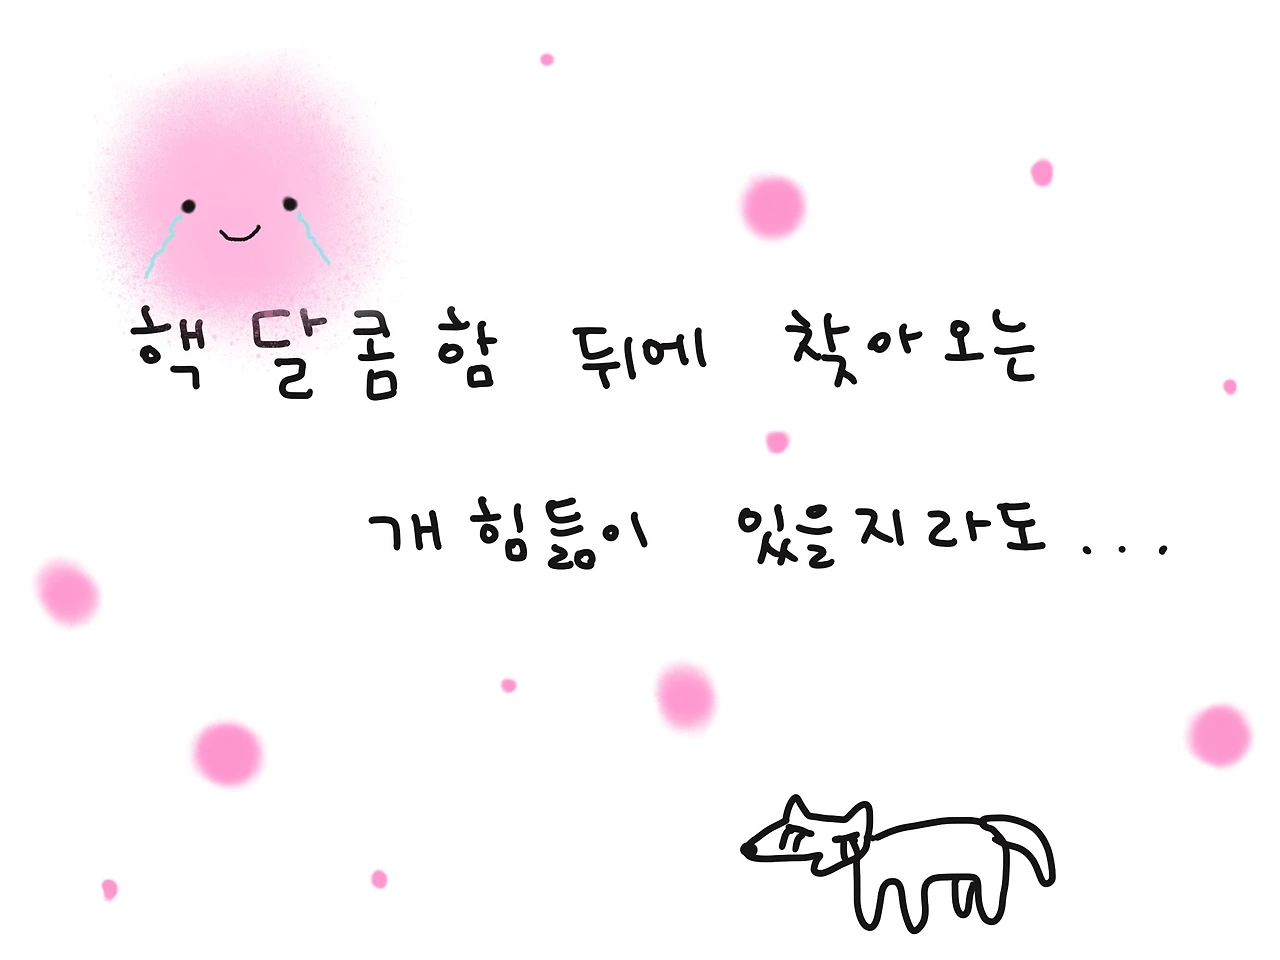 핵 달콤함 뒤에 찾아오는
개힘듦이 있을지라도...